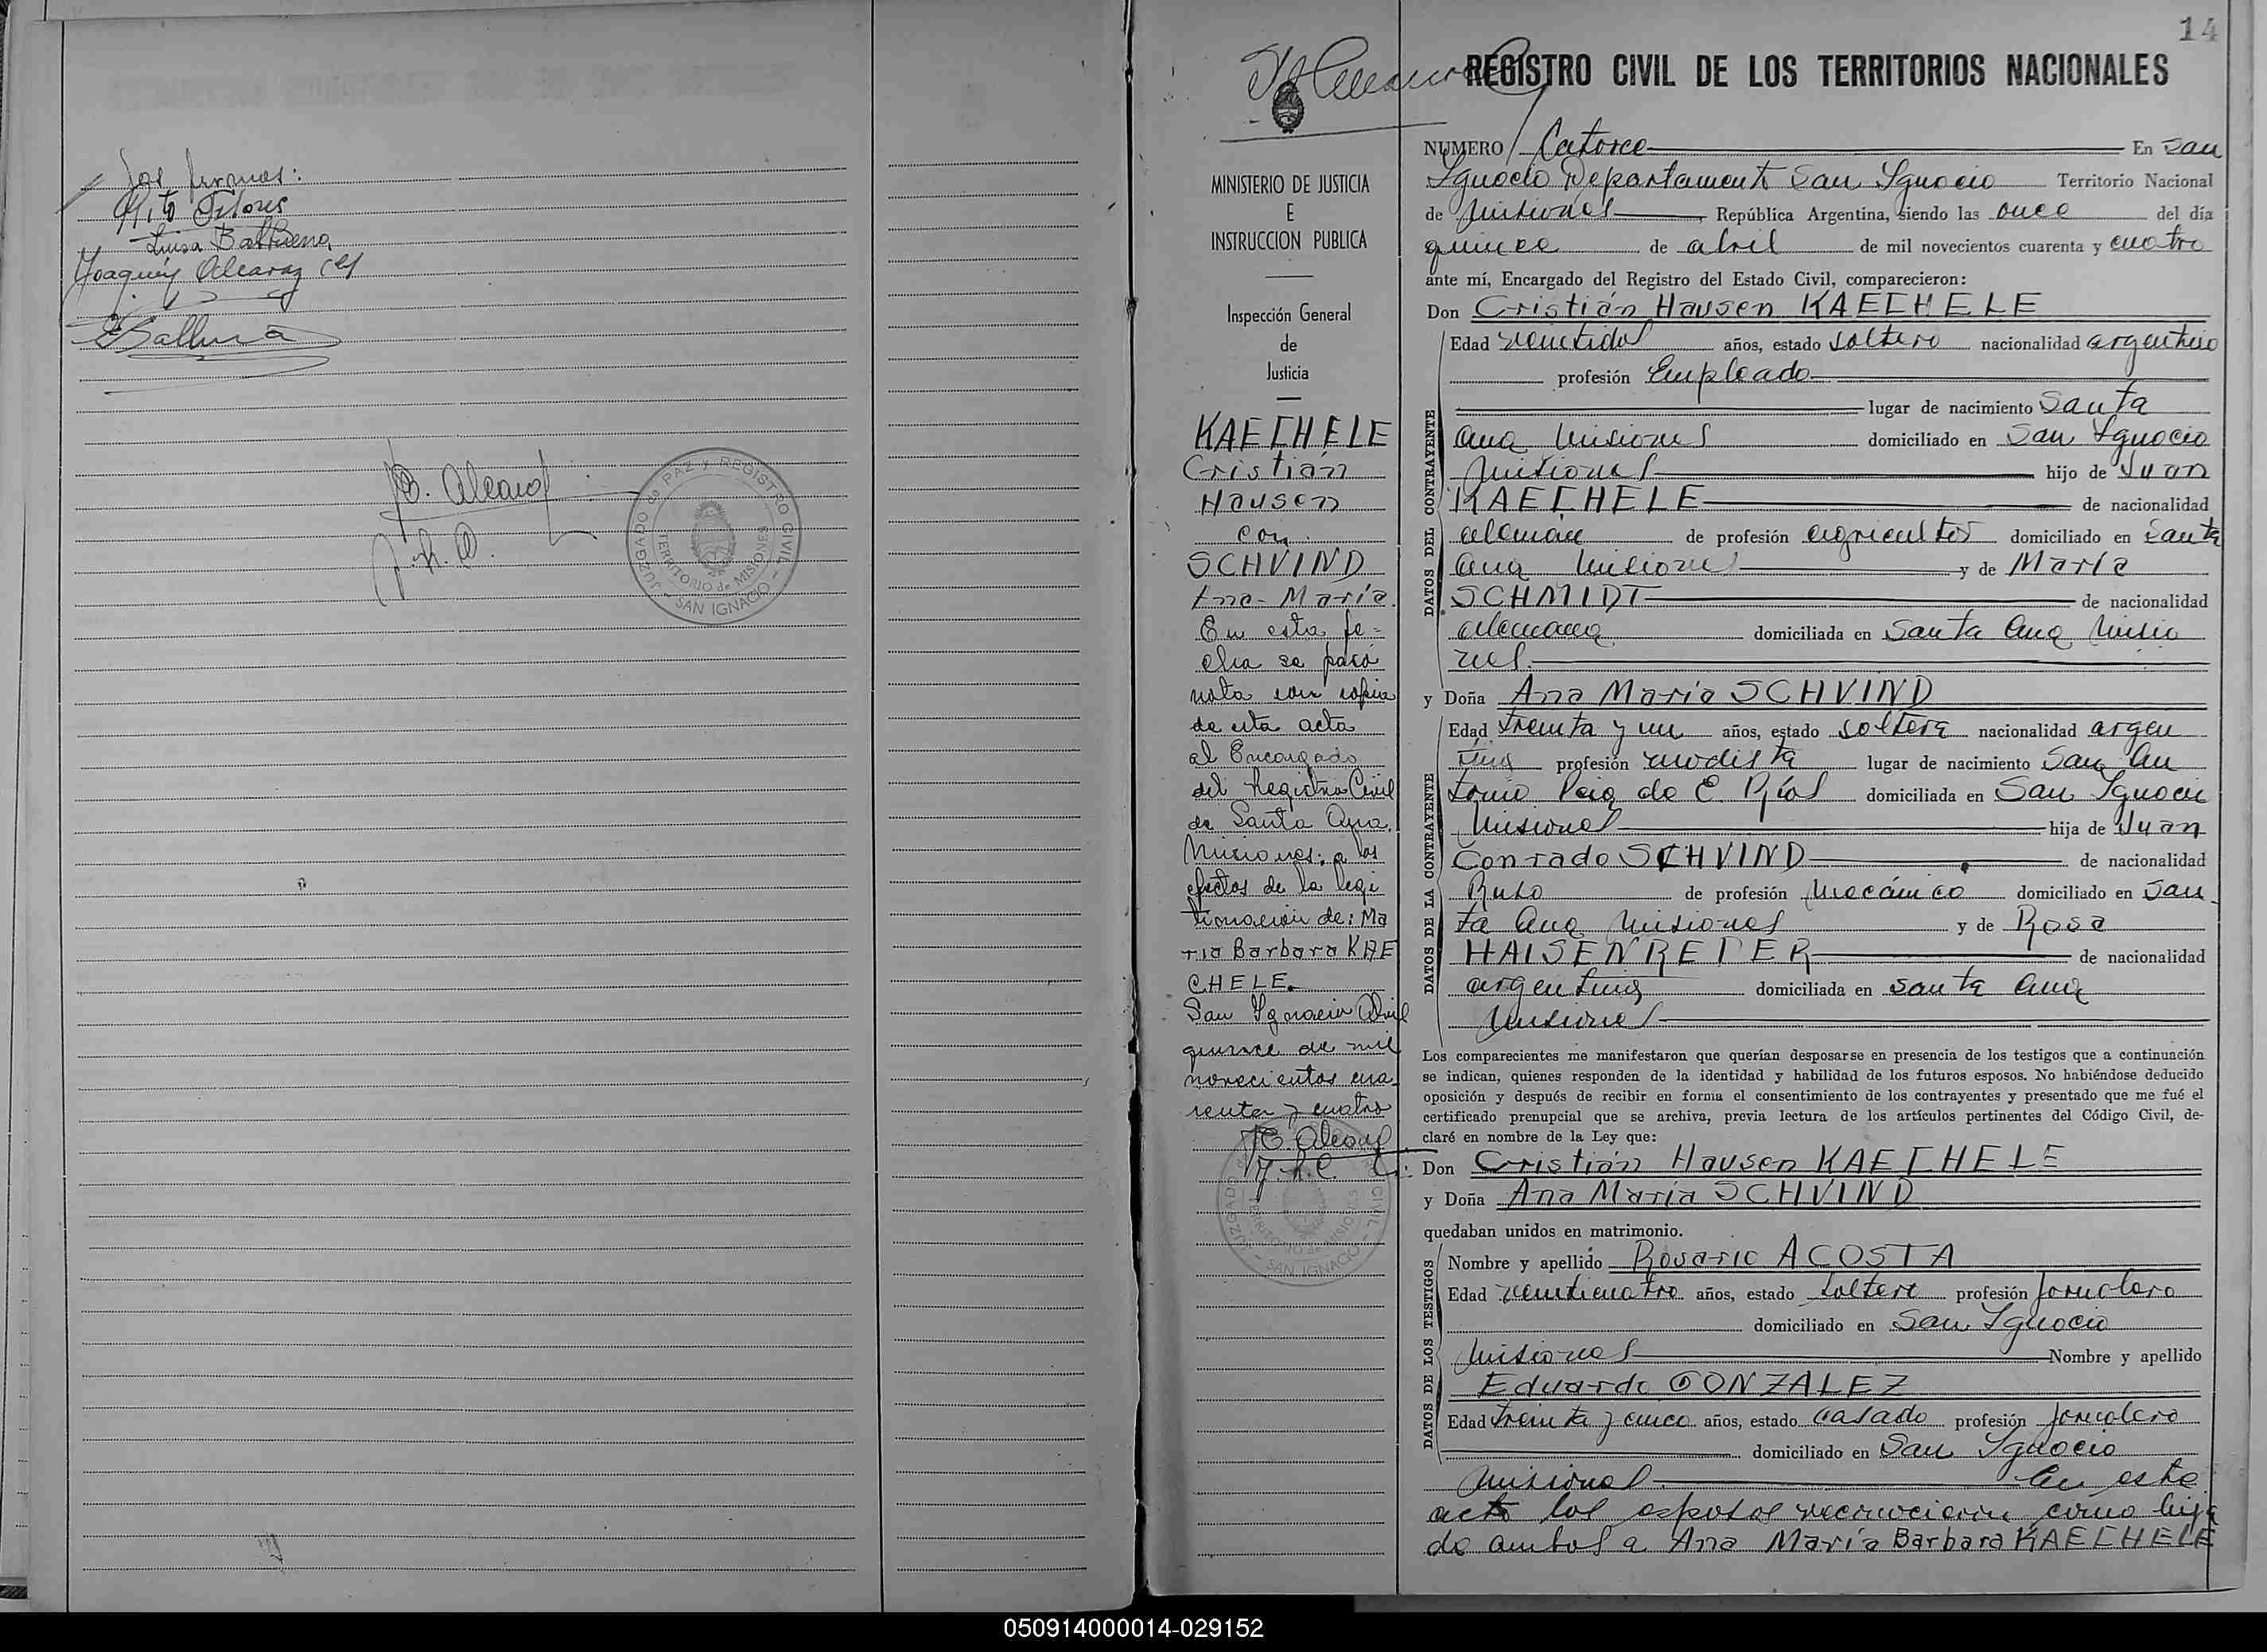 los firmas:
Tito Flores
Luisa Balbuena
Joaquín Alcaraz (h)
EBalbuena
B. Alcaraz
JUZGADO de PAZ y REGISTRO CIVIL
TERRITORIO de MISIONES
- SAN IGNACIO -
14
REGISTRO CIVIL DE LOS TERRITORIOS NACIONALES
MINISTERIO DE JUSTICIA
E
INSTRUCCION PUBLICA
Inspección General
de
Justicia
KAECHELE
Cristián
Hausen
con
SCHVIND
Ana-María.
En esta fe=
cha se pasó
nota con copia
de esta acta
al Encargado
del Registro Civil
de Santa Ana,
Misiones; a los
efectos de la legi
timación de: Ma
ria Barbara KAE
CHELE.
San Ignacio Abril
quince de mil
novecientos cua
renta y cuatro
B. Alcaraz
JUZGADO CIVIL
TERRITORIO de MISIONES
- SAN IGNACIO -
NUMERO Catorce En San
Ignacio Departamento San Ignacio Territorio Nacional
de Misiones República Argentina, siendo las once del día
quince de abril de mil novecientos cuarenta y cuatro
ante mí, Encargado del Registro del Estado Civil, comparecieron:
Don Cristián Hausen KAECHELE
DATOS DEL CONTRAYENTE
Edad veintidos años, estado soltero nacionalidad argentino
profesión Empleado
lugar de nacimiento Santa
Ana Misiones domiciliado en San Ignacio
Misiones hijo de Juan
KAECHELE de nacionalidad
alemán de profesión agricultor domiciliado en Santa
Ana Misiones y de María
SCHMIDT de nacionalidad
alemana domiciliada en Santa Ana Misio
nes.
y Doña Ana María SCHVIND
DATOS DE LA CONTRAYENTE
Edad treinta y un años, estado soltera nacionalidad argen
tina profesión modista lugar de nacimiento San An
tonio Pcia de E. Ríos domiciliada en San Ignacio
Misiones hija de Juan
Conrado SCHVIND de nacionalidad
Ruso de profesión Mecánico domiciliado en San
ta Ana Misiones y de Rosa
HAISENRETER de nacionalidad
argentina domiciliada en Santa Ana
Misiones
Los comparecientes me manifestaron que querían desposarse en presencia de los testigos que a continuación
se indican, quienes responden de la identidad y habilidad de los futuros esposos. No habiéndose deducido
oposición y después de recibir en forma el consentimiento de los contrayentes y presentado que me fué el
certificado prenupcial que se archiva, previa lectura de los artículos pertinentes del Código Civil, de-
claré en nombre de la Ley que:
Don Cristián Hausen KAECHELE
y Doña Ana María SCHVIND
quedaban unidos en matrimonio.
DATOS DE LOS TESTIGOS
Nombre y apellido Rosario ACOSTA
Edad veinticuatro años, estado soltero profesión Jornalero
domiciliado en San Ignacio
Misiones Nombre y apellido
Eduardo GONZALEZ
Edad treinta y cinco años, estado casado profesión Jornalero
domiciliado en San Ignacio
Misiones En este
acto los esposos reconocieron como hija
de ambos a Ana María Barbara KAECHELE
050914000014-029152